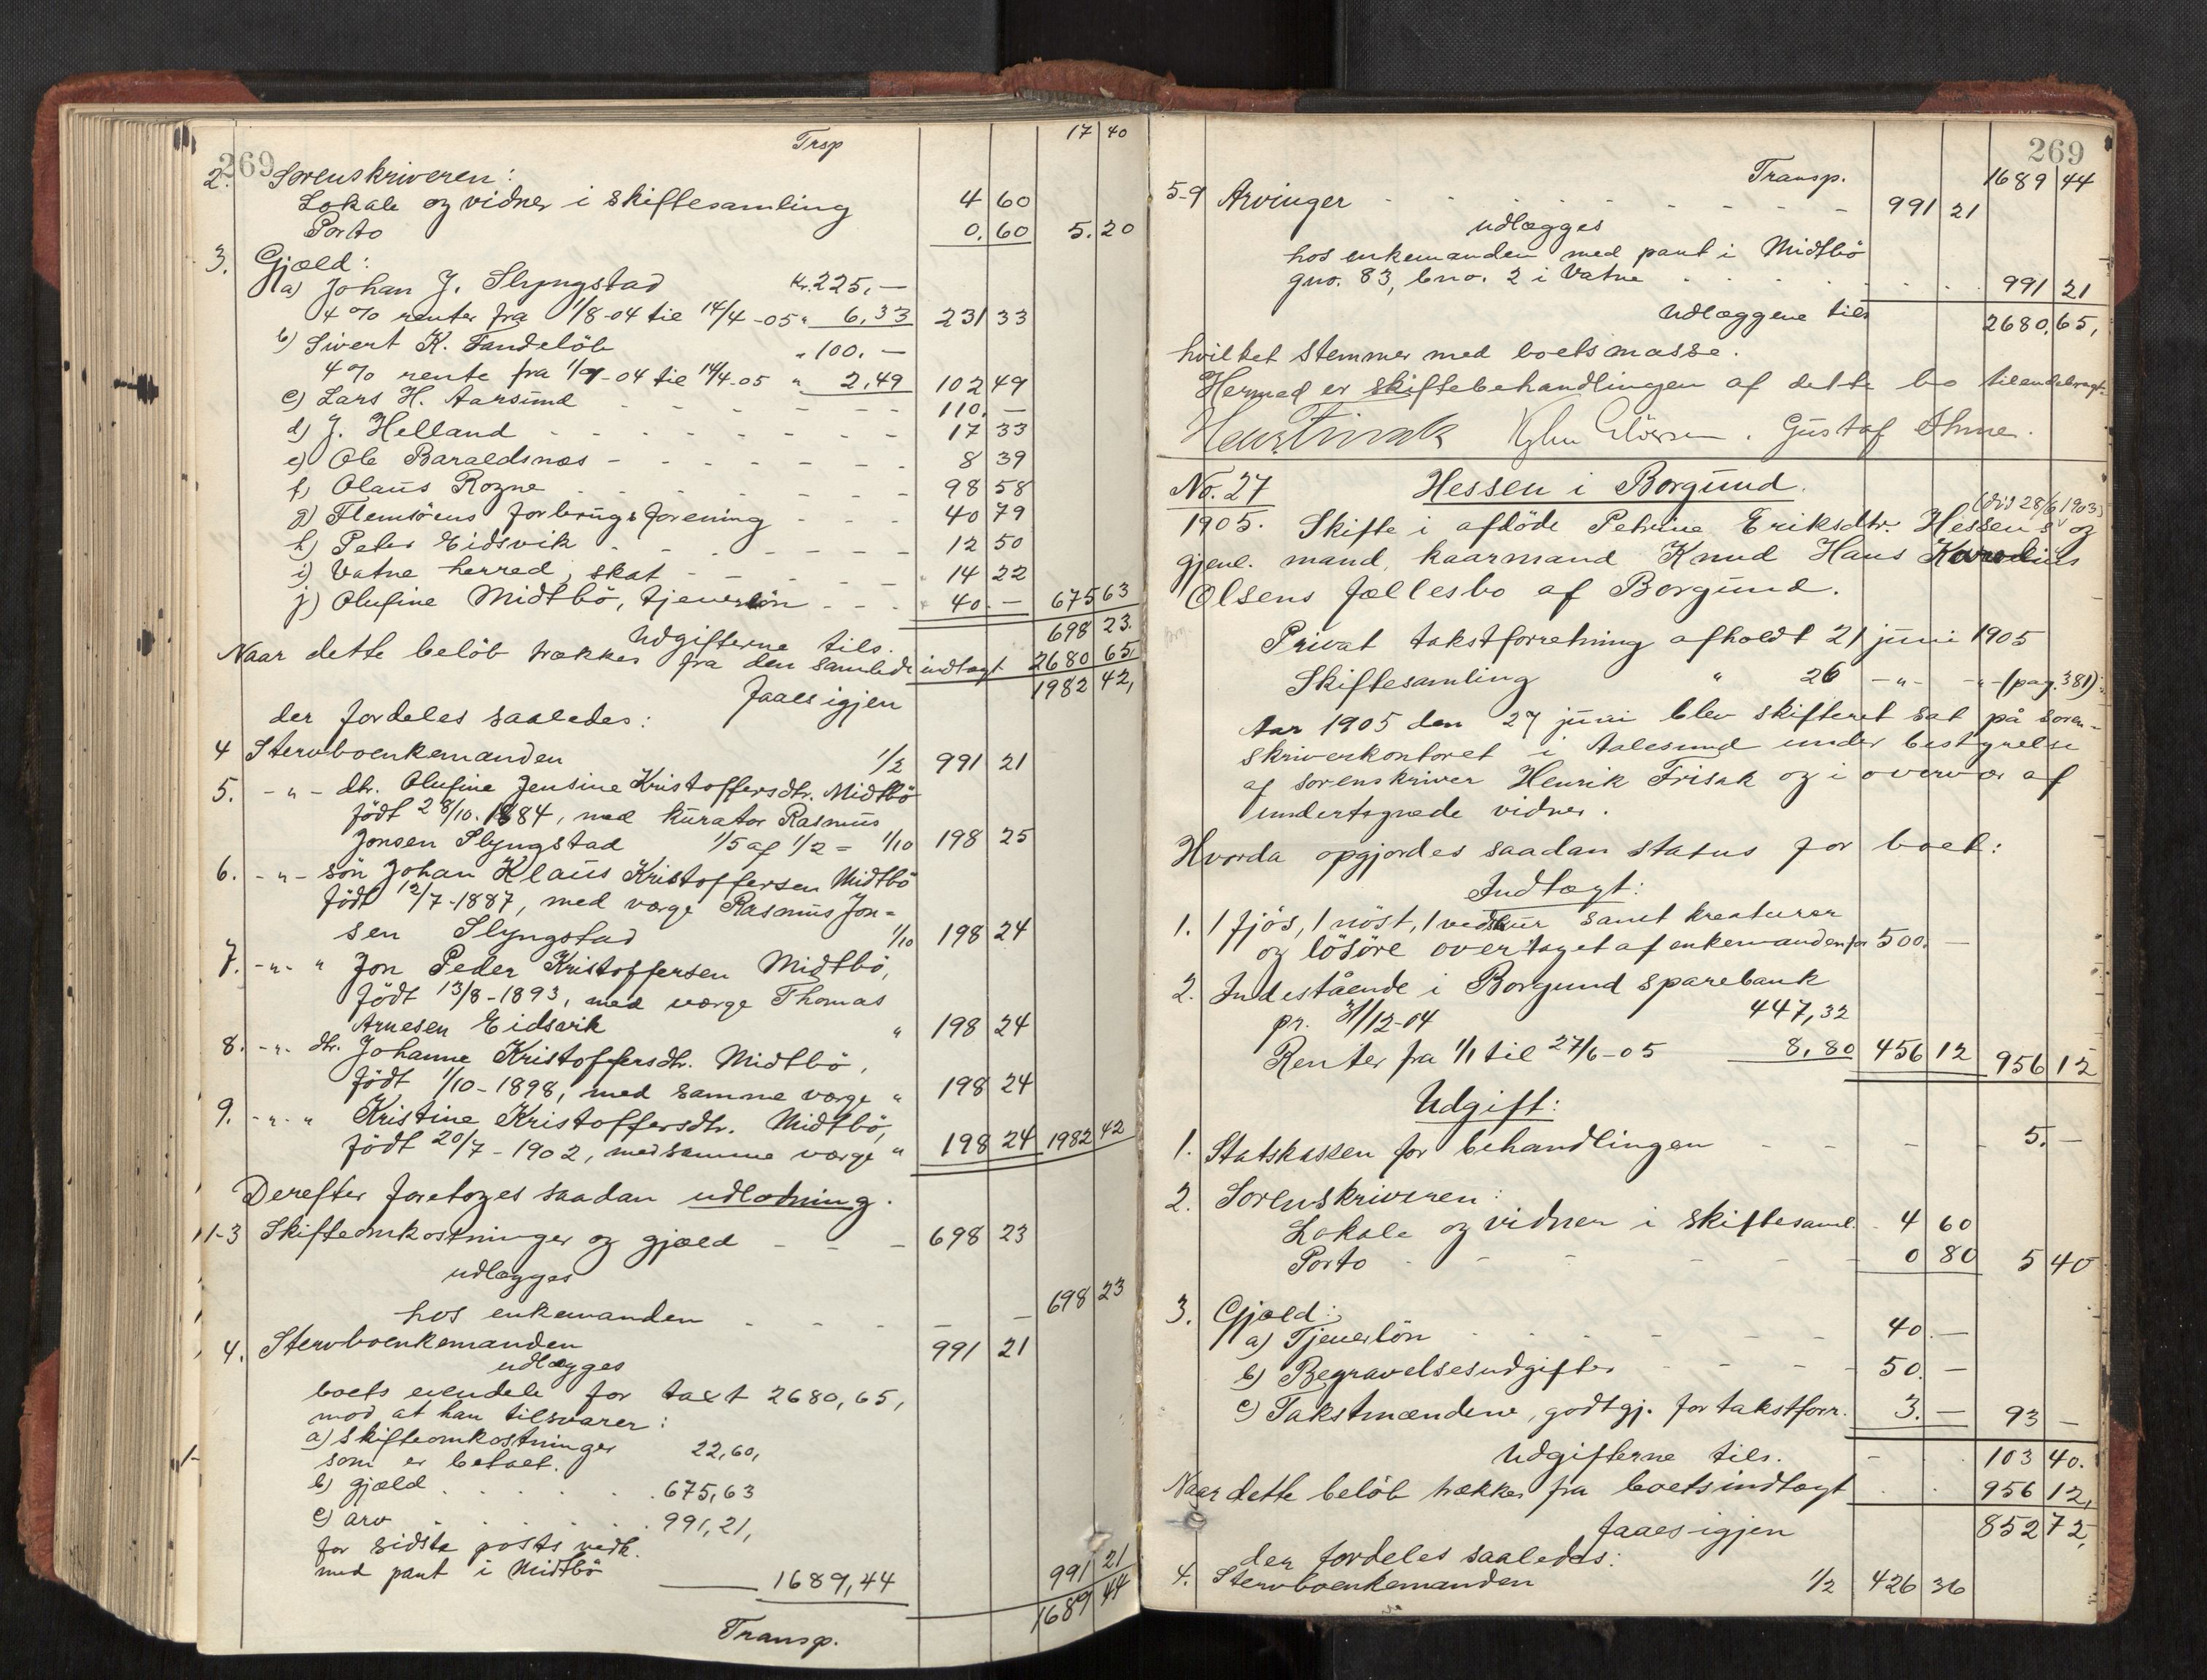 269
Trsp 17 40
2. Sorenskriveren:
Lokale og vidner i skiftesamling 4 60
Porto 0. 60 5. 20
3. Gjæld:
a) Johan J. Slyngstad kr. 225. —
4 % renter fra 1/8-04 til 14/4-05 " 6,33 231 33
b) Sivert K. Tandeløb " 100. —
4 % rente fra 1/9-04 til 14/4-05 " 2,49 102 49
c) Lars H. Aarsund - - - - - - 110. —
d) J. Helland - - - - - - - 17 33
e) Ole Baraldsnæs - - - - - - 8 39
f) Olaus Rogne - - - - - - - 98 58
g) Flemsöens forbrugsforening - - - 40 79
h) Peter Eidsvik - - - - - - - 12 50
i) Vatne herred, skat - - - - - 14 22
j) Olufine Midtbö, tjenerlön - - - 40. — 675 63
Udgifterne tils. 698 23.
Naar dette belöb trækkes fra den samlede indtægt 2680 65
faaes igjen 1982 42,
der fordeles saaledes:
4 Stervboenkemanden 1/2 991 21
5. - " - dtr. Olufine Jensine Kristoffersdtr. Midtbö
födt 28/10. 1884, med kurator Rasmus
Jonsen Slyngstad 1/5 af 1/2 = 1/10 198 25
6. - " - sön Johan Klaus Kristoffersen Midtbö
födt 12/7-1887, med værge Rasmus Jon=
sen Slyngstad 1/10 198 24
7. - " - " Jon Peder Kristoffersen Midtbö,
födt 13/8-1893, med værge Thomas
Arnesen Eidsvik " 198 24
8. - " - dtr. Johanne Kristoffersdtr. Midtbö,
födt 1/10-1898, med samme værge " 198 24
9. - " - " Kristine Kristoffersdtr. Midtbö,
födt 20/7-1902, med samme værge " 198 24 1982 42
Derefter foretoges saadan udlodning.
1-3 Skifteomkostninger og gjæld - - - 698 23
udlægges
hos enkemanden - - - - - 698 23
4. Stervboenkemanden 991 21
udlægges
boets eiendele for taxt 2680,65,
mod at han tilsvarer:
a) skifteomkostninger 22,60,
som er betalt.
b) gjæld . . . . . 675,63
c) arv . . . . . . 991,21,
for sidste posts vedk.
med pant i Midtbö 991 21
1689,44 1689 44
Transp.
269
Transp. 1689 44
5-9 Arvinger - - - - - - - 991 21
udlægges
hos enkemanden med pant i Midtbö
gno. 83, bno. 2 i Vatne . . . . . . 991 21
Udlæggene tils 2680,65,
hvilket stemmer med boets masse.
Hermed er skiftebehandlingen af dette bo tilendebragt.
Gustaf Ihme.
No. 27 Hessen i Borgund.
(död 28/6 1903)
1905. Skifte i afdöde Petrine Eriksdtr. Hessen's og
gjenl. mand, kaarmand Knud Hans Karolius
Olsens fællesbo af Borgund.
Privat takstforretning afholdt 21 juni 1905
Skiftesamling " 26 - " - - " - (pag. 381):
Aar 1905 den 27 juni blev skifteret sat på soren-
skriverkontoret i Aalesund under bestyrelse
af sorenskriver Henrik Frisak og i overvær af
undertegnede vidner.
Hvorda opgjordes saadan status for boet:
Indtægt:
1. 1 fjös, 1 nöst, 1 vedskur samt kreaturer
og lösöre overtaget af enkemanden for 500. —
2. Indestående i Borgund sparebank
pr. 31/12-04 447,32
Renter fra 1/1 til 27/6-05 8,80 456 12 956 12
Udgift:
1. Statskassen for behandlingen - - - - 5. —
2. Sorenskriveren:
Lokale og vidner i skiftesaml. - 4 60
Porto - - - - - - 0 80 5 40
3. Gjæld:
a) Tjenerlön - - - - - - 40. —
b) Begravelsesudgifter - - - - 50. —
c) Takstmændene, godtgj. for takstforr. 3. — 93 —
Udgifterne tils. - . . 103 40.
Naar dette belöb trækkes fra boets indtægt . . 956 12,
faaes igjen 852 72,
der fordeles saaledes:
4. Stervboenkemanden 1/2 426 36